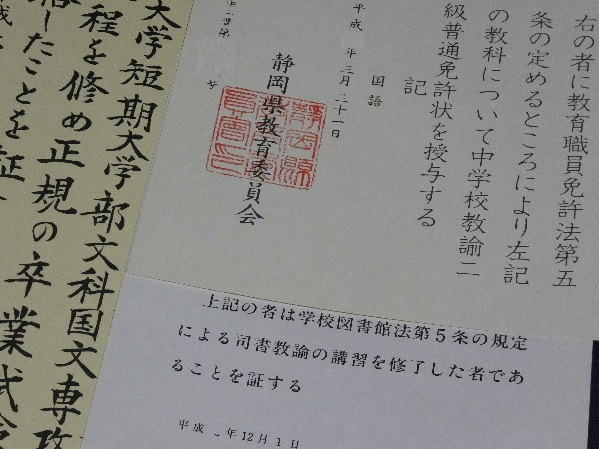 右の者に教育職員免許法第五
条の定めるところにより左記
の教科について中学校教諭二
級普通免許状を授与する
記
国語
平成 年三月三十一日
静岡県教育委員会
号
上記の者は学校図書館法第5条の規定
による司書教諭の講習を修了した者であ
ることを証する
平成 年12月1日
大学短期大学部文科国文専攻
程を修め正規の卒業試験
したことを証